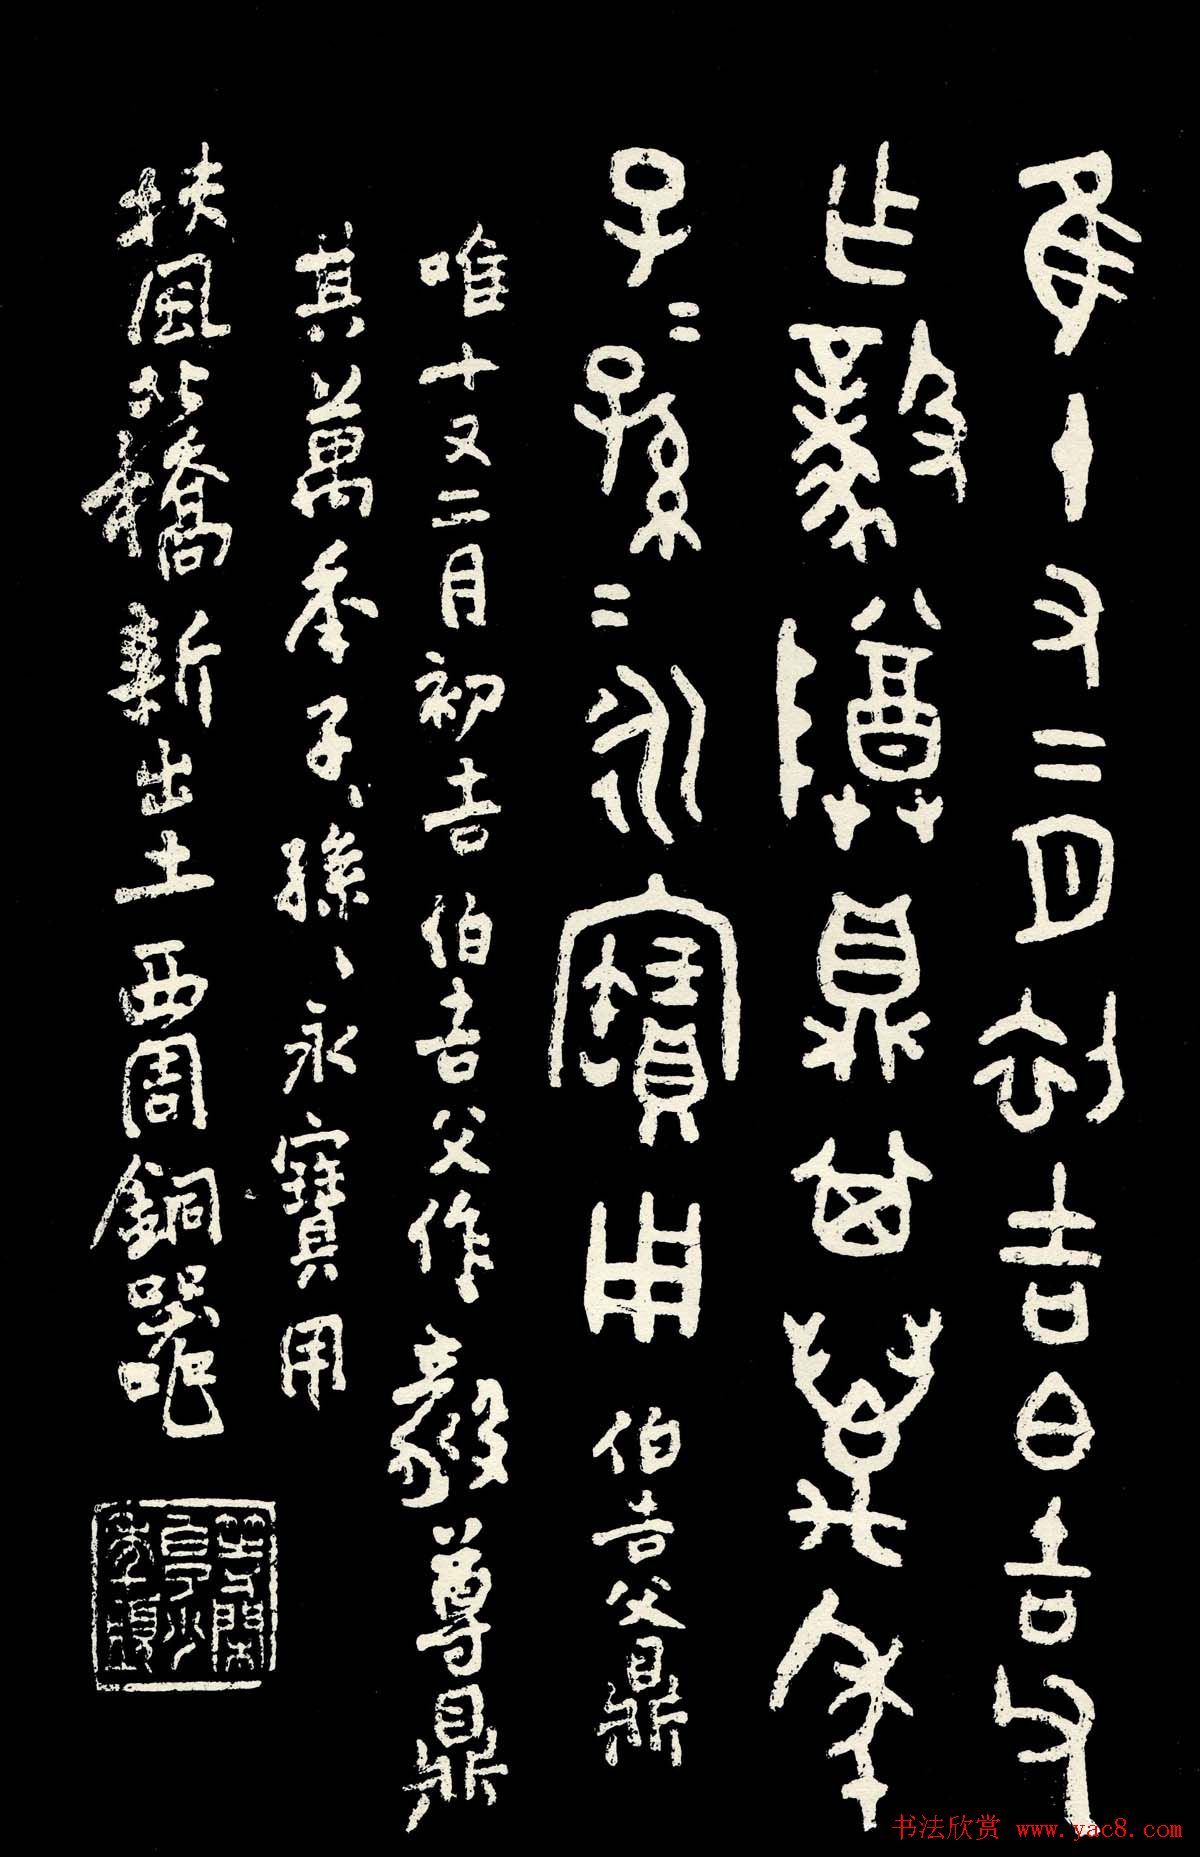 隹十又二月初吉白吉父
乍毅𬯚鼎其萬年
子二孫二永寶用
伯吉父鼎
唯十又二月初吉伯吉父作毅尊鼎
其萬年子、孫、永寶用
扶風北橋新出土西周銅器
书法欣赏 www.yac8.com